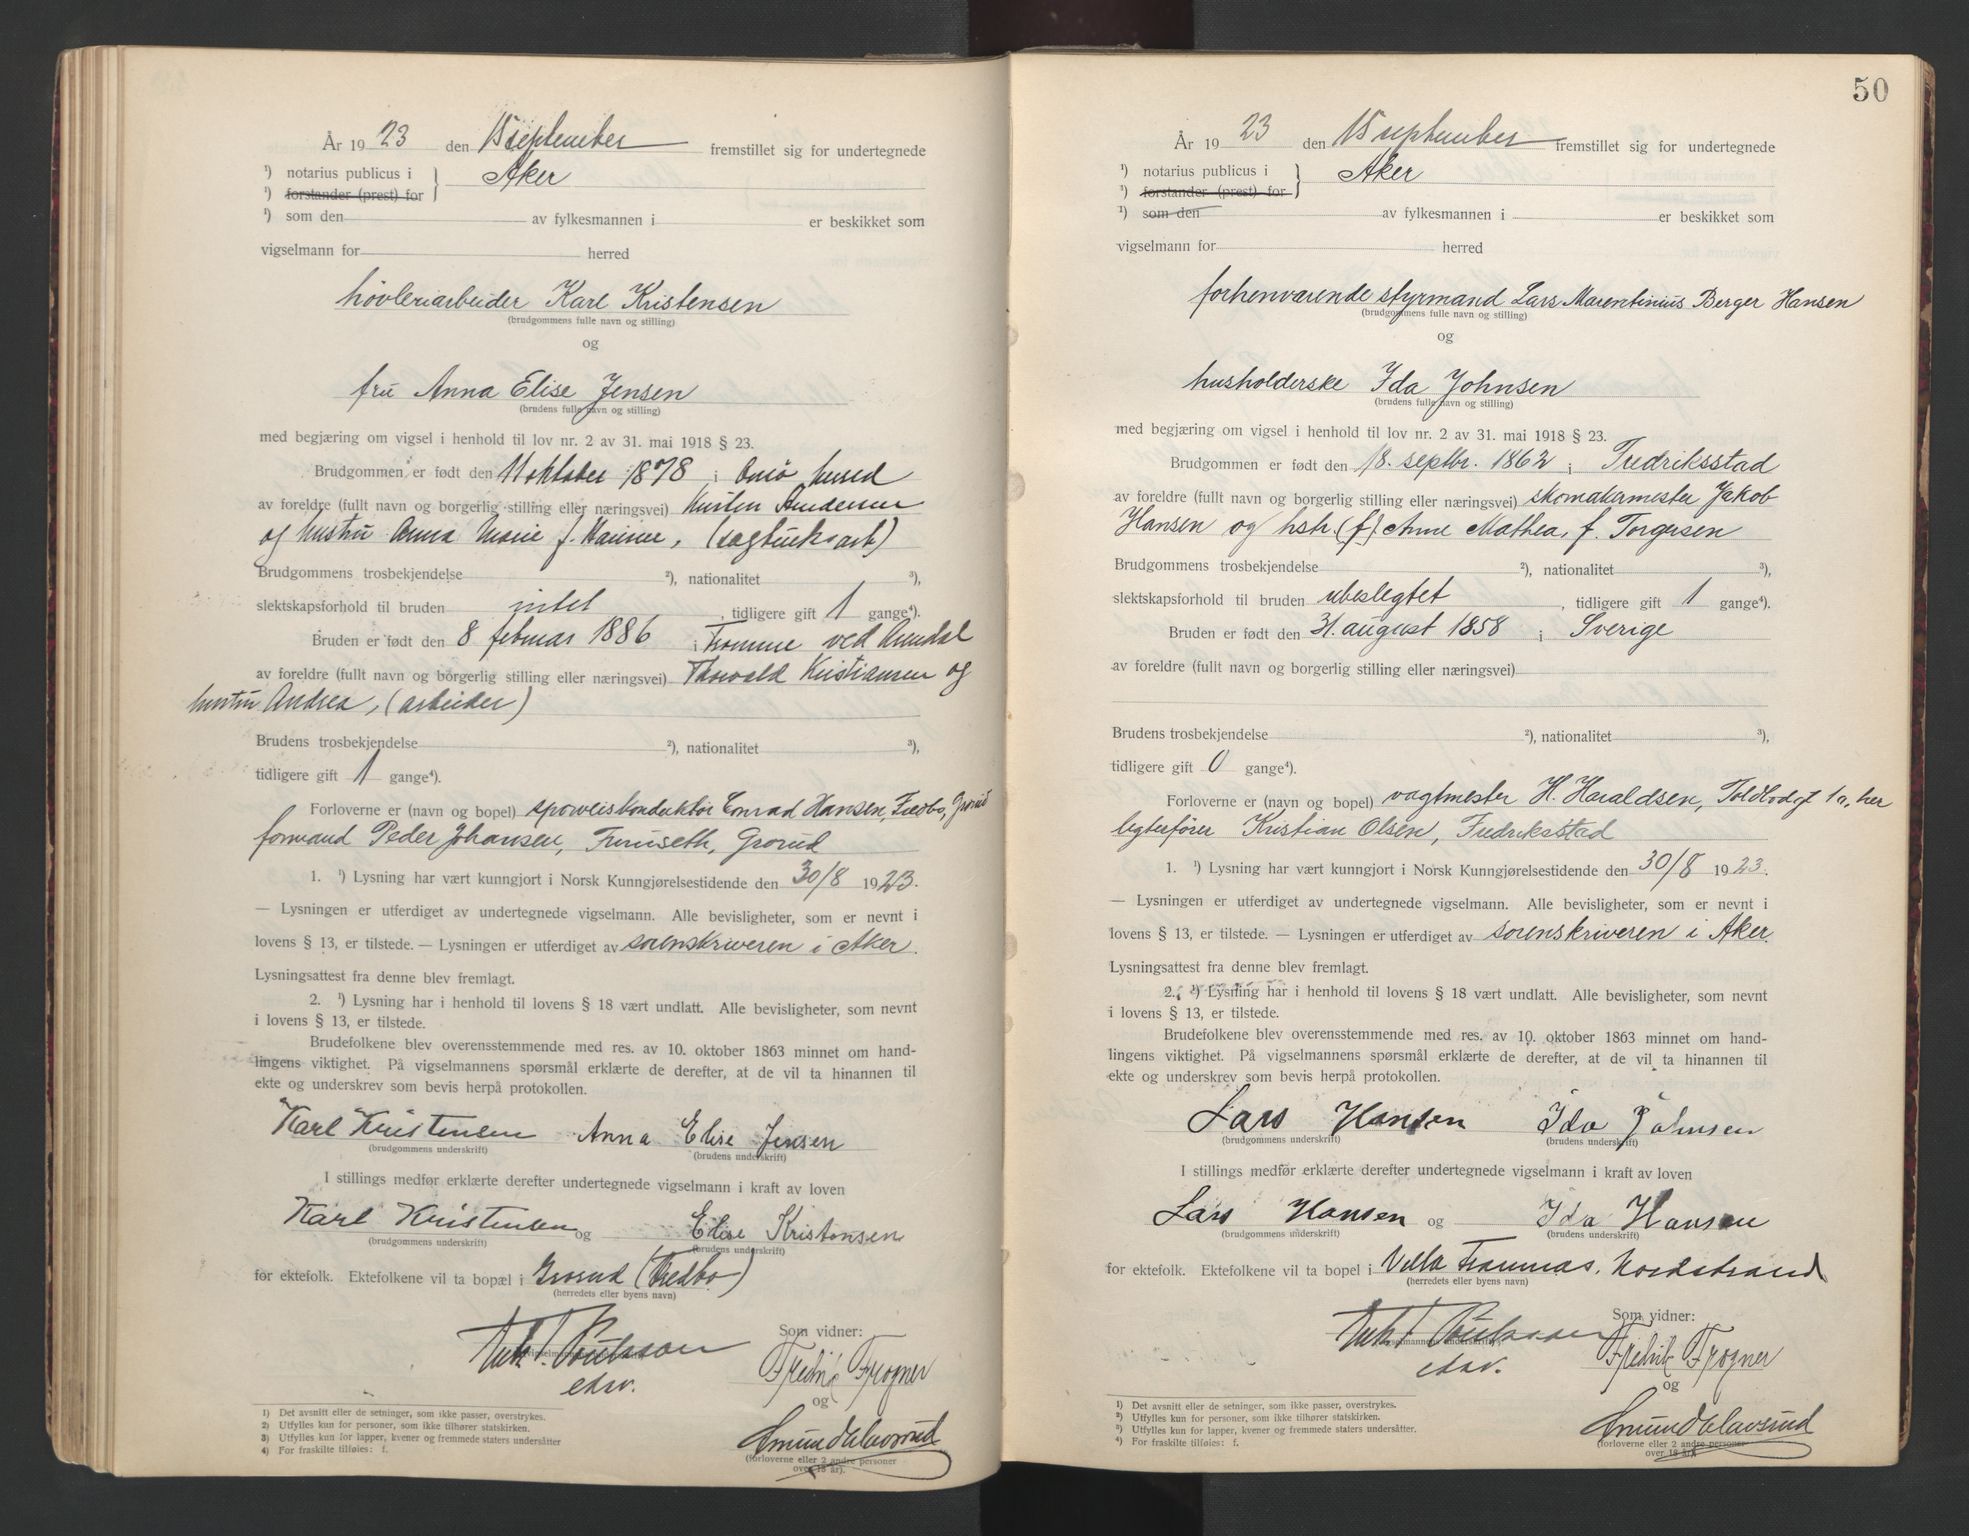 År 1923 den 15 september fremstillet sig for undertegnede
¹) notarius publicus i } Aker
¹) forstander (prest) for
¹) som den av fylkesmannen i er beskikket som
vigselmann for herred
høvleriarbeider Karl Kristensen
(brudgommens fulle navn og stilling)
og
fru Anna Elise Jensen
(brudens fulle navn og stilling)
med begjæring om vigsel i henhold til lov nr. 2 av 31. mai 1918 § 23.
Brudgommen er født den 11 oktober 1878 i Onsø herred
av foreldre (fullt navn og borgerlig stilling eller næringsvei) Kristen Andersen
og hustru Anna Marie f. Hansen, (sagbruksarb)
Brudgommens trosbekjendelse ²), nationalitet ³),
slektskapsforhold til bruden intet , tidligere gift 1 gange⁴).
Bruden er født den 8 februar 1886 i Tromme ved Arendal
av foreldre (fullt navn og borgerlig stilling eller næringsvei) Thorvald Kristiansen og
hustru Andrea, (arbeider)
Brudens trosbekjendelse ²), nationalitet ³),
tidligere gift 1 gange⁴).
Forloverne er (navn og bopel) sporveiskonduktør Conrad Hansen, Grorud
formand Peder Johansen, Furuseth, Grorud
1. ¹) Lysning har vært kunngjort i Norsk Kunngjørelsestidende den 30/8 1923.
— Lysningen er utferdiget av undertegnede vigselmann. Alle bevisligheter, som er nevnt i
lovens § 13, er tilstede. — Lysningen er utferdiget av sorenskriveren i Aker.
Lysningsattest fra denne blev fremlagt.
2. ¹) Lysning har i henhold til lovens § 18 vært undlatt. Alle bevisligheter, som nevnt
i lovens § 13, er tilstede.
Brudefolkene blev overensstemmende med res. av 10. oktober 1863 minnet om hand-
lingens viktighet. På vigselmannens spørsmål erklærte de derefter, at de vil ta hinannen til
ekte og underskrev som bevis herpå protokollen.
Karl Kristensen Anna Elise Jensen
(brudgommens underskrift) (brudens underskrift)
I stillings medfør erklærte derefter undertegnede vigselmann i kraft av loven
Karl Kristensen og Elise Kristensen
(brudgommens underskrift) (brudens underskrift)
for ektefolk. Ektefolkene vil ta bopæl i Grorud (Fredbo)
(herredets eller byens navn)
Som vidner:
Fredrik Frogner
og
(forloverne eller 2 andre personer
over 18 år).
1) Det avsnitt eller de setninger, som ikke passer, overstrykes.
2) Utfylles kun for personer, som ikke tilhører statskirken.
3) Utfylles kun for lapper, kvener og fremmede staters undersåtter
4) For fraskilte tilføies: f.
50
År 1923 den 15 september fremstillet sig for undertegnede
¹) notarius publicus i } Aker
¹) forstander (prest) for
¹) som den av fylkesmannen i er beskikket som
vigselmann for herred
forhenværende styrmand Lars Marentinius Berger Hansen
(brudgommens fulle navn og stilling)
og
husholderske Ida Johnsen
(brudens fulle navn og stilling)
med begjæring om vigsel i henhold til lov nr. 2 av 31. mai 1918 § 23.
Brudgommen er født den 18. septbr. 1862 i Fredriksstad
av foreldre (fullt navn og borgerlig stilling eller næringsvei) skomakermester Jakob
Hansen og hstr. (f) Anne Mathea, f. Torgersen
Brudgommens trosbekjendelse ²), nationalitet ³),
slektskapsforhold til bruden ubeslegtet , tidligere gift 1 gange⁴).
Bruden er født den 31. august 1858 i Sverige
av foreldre (fullt navn og borgerlig stilling eller næringsvei)
Brudens trosbekjendelse ²), nationalitet ³),
tidligere gift 0 gange⁴).
Forloverne er (navn og bopel) vagtmester H. Haraldsen, Toldbodgt 1a, her
legterfører Kristian Olsen, Fredriksstad
1. ¹) Lysning har vært kunngjort i Norsk Kunngjørelsestidende den 30/8 1923.
— Lysningen er utferdiget av undertegnede vigselmann. Alle bevisligheter, som er nevnt i
lovens § 13, er tilstede. — Lysningen er utferdiget av sorenskriveren i Aker.
Lysningsattest fra denne blev fremlagt.
2. ¹) Lysning har i henhold til lovens § 18 vært undlatt. Alle bevisligheter, som nevnt
i lovens § 13, er tilstede.
Brudefolkene blev overensstemmende med res. av 10. oktober 1863 minnet om hand-
lingens viktighet. På vigselmannens spørsmål erklærte de derefter, at de vil ta hinannen til
ekte og underskrev som bevis herpå protokollen.
Lars Hansen Ida Johnsen
(brudgommens underskrift) (brudens underskrift)
I stillings medfør erklærte derefter undertegnede vigselmann i kraft av loven
Lars Hansen og Ida Hansen
(brudgommens underskrift) (brudens underskrift)
for ektefolk. Ektefolkene vil ta bopel i Villa Framnæs, Nordstrand
(herredets eller byens navn)
Som vidner:
Fredrik Frogner
og
(forloverne eller 2 andre personer
over 18 år).
1) Det avsnitt eller de setninger, som ikke passer, overstrykes.
2) Utfylles kun for personer, som ikke tilhører statskirken.
3) Utfylles kun for lapper, kvener og fremmede staters undersåtter.
4) For fraskilte tilføies: f.